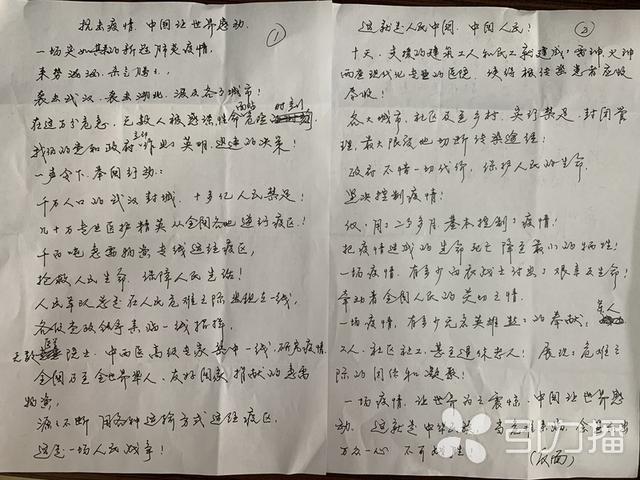 抗击疫情 中国让世界感动
①
一场突如其来的新冠肺炎疫情,
来势汹汹,
袭击武汉,袭击湖北,波及各个城市!
在这万分危急,无数人被感染性命危险 时刻
我们的党和政府作出了英明,迅速的决策!
一声令下,举国行动:
千万人口的武汉封城,十多亿人民禁足!
几十万专业医护精英从全国各地逆行疫区!
千百吨急需物资专线运往疫区,
抢救人民生命,保障人民生活!
人民军队总是在人民危难之际出现在一线,
各级党政领导亲临一线指挥,
无数 院士,中西医高级专家集中一线,研究疫情,
全国乃至全世界华人,友好国家捐献的急需
物资,
源源不断 用各种运输方式送往疫区,
这是一场人民战争!
②
这就是人民中国,中国人民!
十天,支援的建筑工人和民工新建成了雷神,火神
两座现代化专业的医院,使得被传染患者应收
尽收!
各大城市,社区及至乡村,实行禁足,封闭管
理,最大限度地切断传染途径!
政府不惜一切代价,保护人民的生命,
坚决控制疫情!
仅用了二个多月基本控制了疫情!
把疫情造成的生命死亡降至最小的牺牲!
一场疫情,有多少白衣战士付出了艰辛及生命!
牵动着全国人民的关切之情,
一场疫情,有多少无名英雄 的奉献,军人
工人,社区社工,甚至退休老人!展现了危难之
际的团结和凝聚!
一场疫情,让世界为之震惊,中国让世界感
动,这就是中华
万众一心 不可
(反面)
引力播